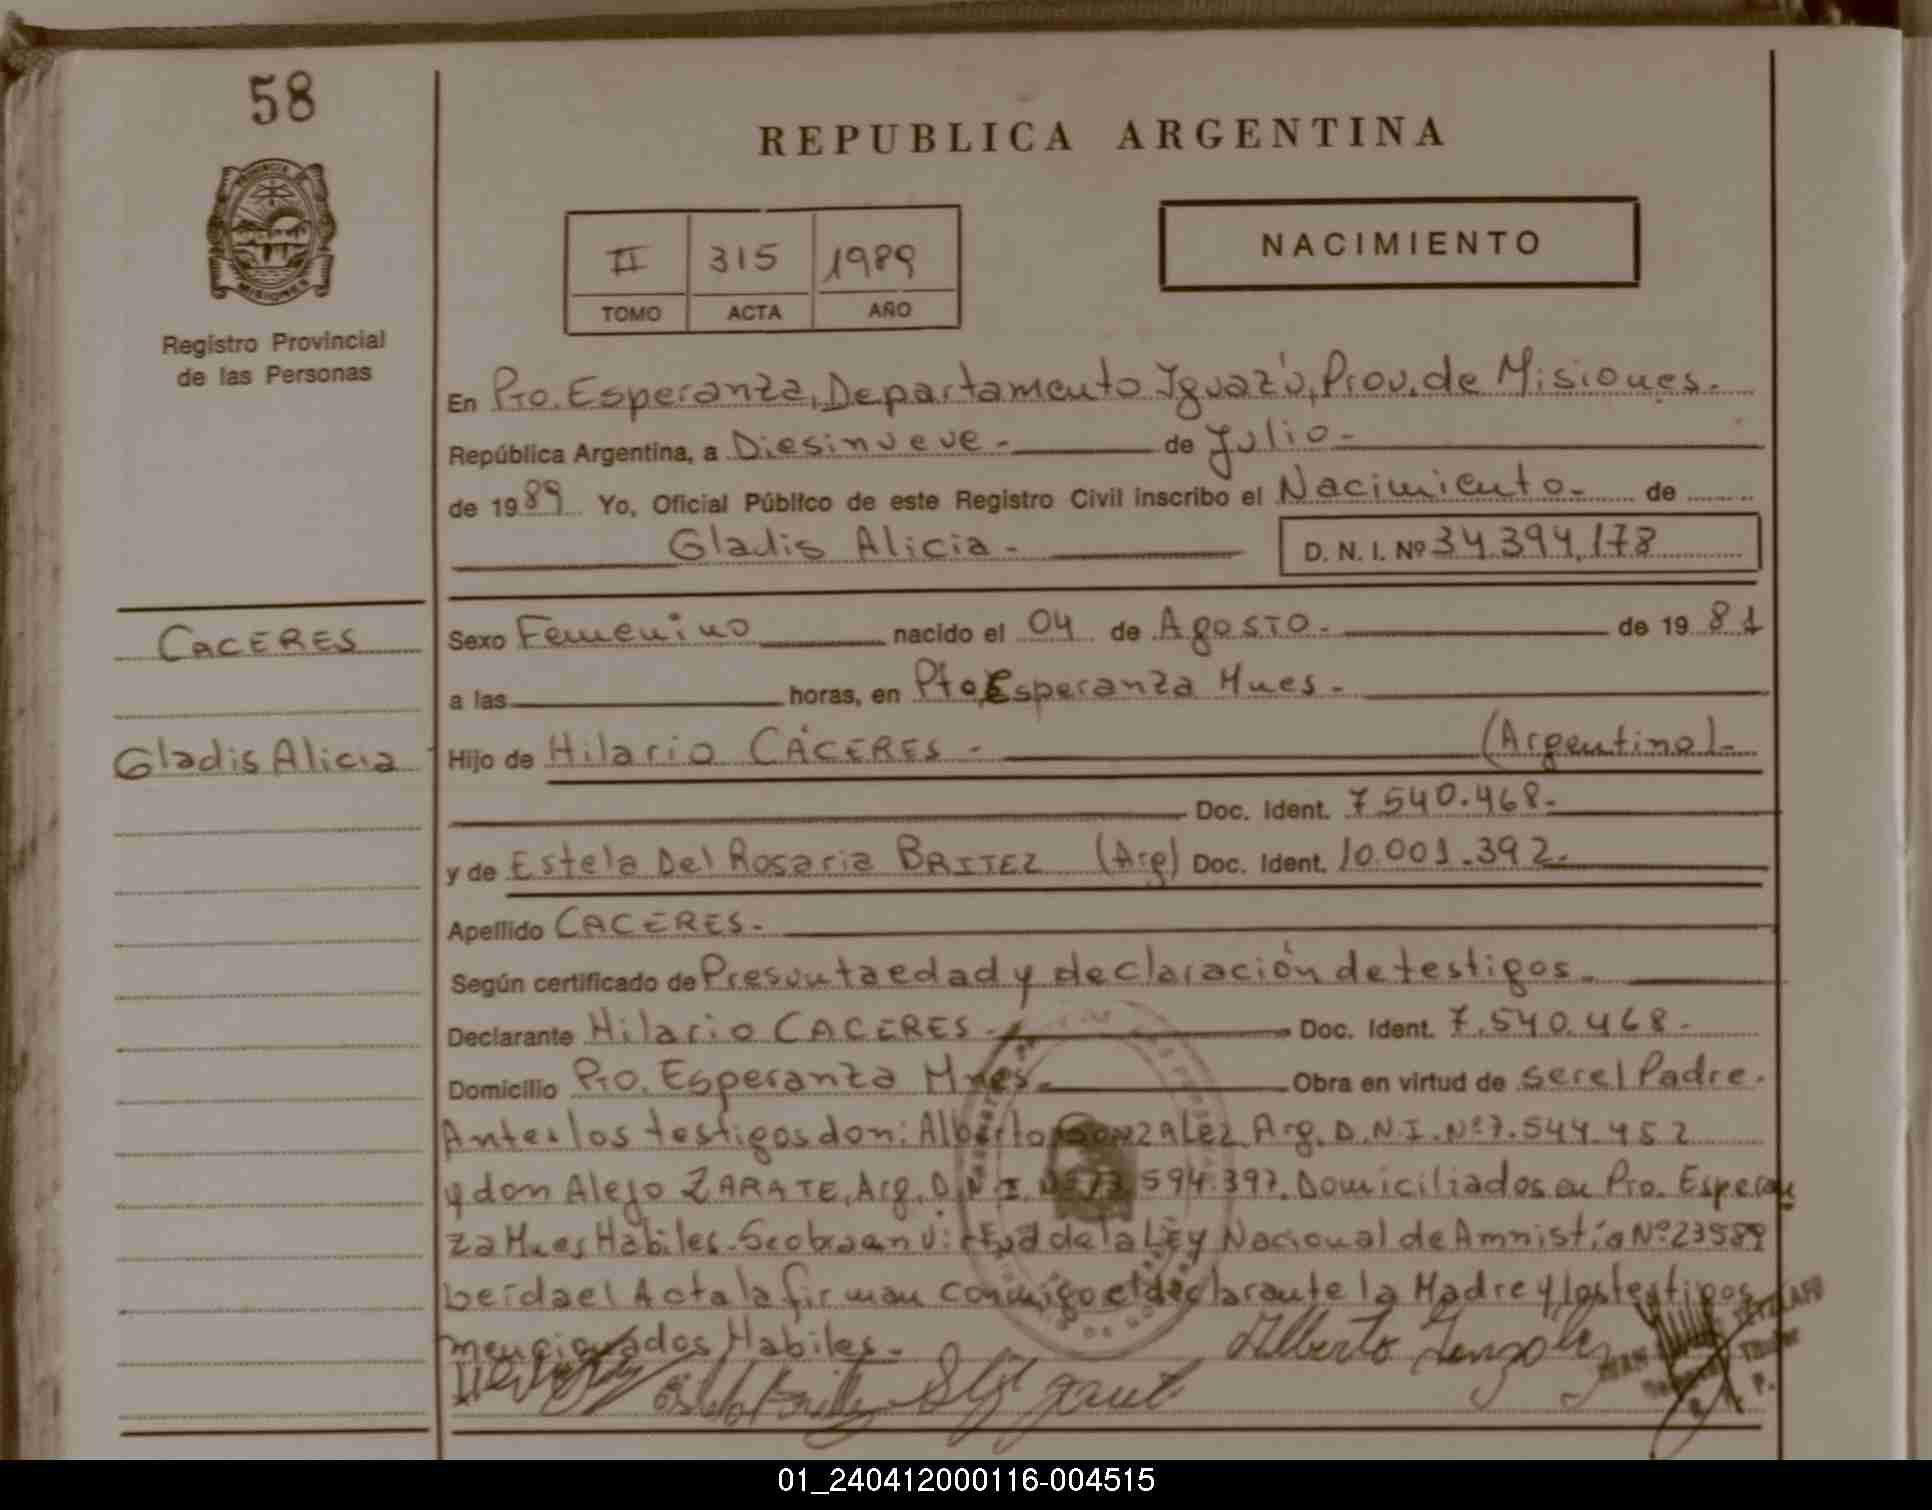 58
REPUBLICA ARGENTINA
MISIONES
Registro Provincial
de las Personas
II 315 1989
TOMO ACTA AÑO
NACIMIENTO
En Pto. Esperanza, Departamento Iguazú, Prov. de Misiones.
República Argentina, a Diesinueve - de Julio -
de 1989 Yo, Oficial Público de este Registro Civil inscribo el Nacimiento - de
Gladis Alicia - D. N. I. Nº 34.394,178
CACERES
Sexo Femenino nacido el 04 de Agosto - de 1981
a las horas, en Pto. Esperanza Mnes -
Gladis Alicia
Hijo de Hilario CÁCERES - (Argentino)-
Doc. Ident. 7.540.468-
y de Estela Del Rosaria BRITEZ (Arg) Doc. Ident. 10.001.392-
Apellido CACERES -
Según certificado de Presuntaedad y declaración de testigos -
Declarante Hilario CACERES - Doc. Ident. 7.540.468-
Domicilio Pto. Esperanza Mnes - Obra en virtud de ser el Padre.
Antes los testigos don: Alberto GONZALEZ, Arg. D.N.I. Nº7.544.452
y don Alejo ZARATE, Arg. D.N.I. 594.397. Domiciliados en Pto. Esperan
za Mnes Habiles. Se obra en virtud de la Ley Nacional de Amnistía Nº 23589
Leída el Acta la firman conmigo el declarante la Madre y los testigos
mencionados Habiles -
Alberto Gonzalez
01_240412000116-004515